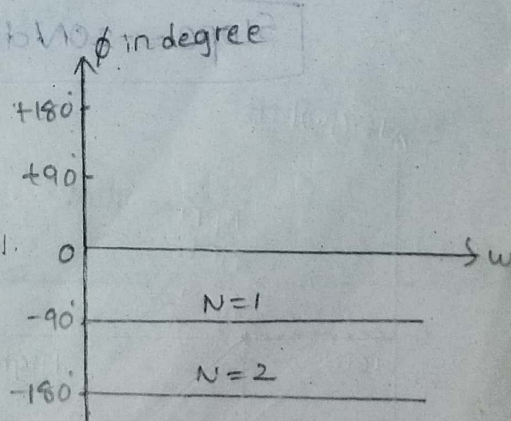 ϕ in degree
+180°
+90°
0
ω
N=1
-90°
N=2
-180°